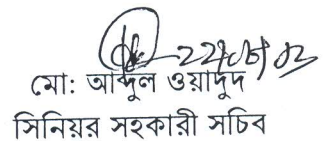 মো: আব্দুল ওয়াদুদ
সিনিয়র সহকারী সচিব